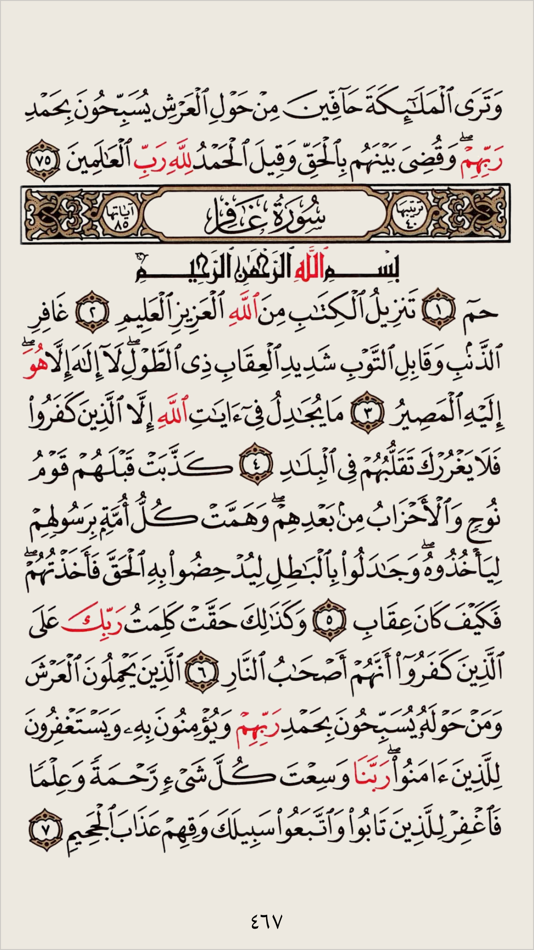 وَتَرَى ٱلْمَلَٰٓئِكَةَ حَآفِّينَ مِنْ حَوْلِ ٱلْعَرْشِ يُسَبِّحُونَ بِحَمْدِ
رَبِّهِمْۖ وَقُضِىَ بَيْنَهُم بِٱلْحَقِّ وَقِيلَ ٱلْحَمْدُ لِلَّهِ رَبِّ ٱلْعَٰلَمِينَ ٧٥
ترتيبها ٤٠ سُورَةُ غَافِرٍ آياتها ٨٥
بِسْمِ ٱللَّهِ ٱلرَّحْمَٰنِ ٱلرَّحِيمِ
حمٓ ١ تَنزِيلُ ٱلْكِتَٰبِ مِنَ ٱللَّهِ ٱلْعَزِيزِ ٱلْعَلِيمِ ٢ غَافِرِ
ٱلذَّنۢبِ وَقَابِلِ ٱلتَّوْبِ شَدِيدِ ٱلْعِقَابِ ذِى ٱلطَّوْلِۖ لَآ إِلَٰهَ إِلَّا هُوَۖ
إِلَيْهِ ٱلْمَصِيرُ ٣ مَا يُجَٰدِلُ فِىٓ ءَايَٰتِ ٱللَّهِ إِلَّا ٱلَّذِينَ كَفَرُوا۟
فَلَا يَغْرُرْكَ تَقَلُّبُهُمْ فِى ٱلْبِلَٰدِ ٤ كَذَّبَتْ قَبْلَهُمْ قَوْمُ
نُوحٍ وَٱلْأَحْزَابُ مِنۢ بَعْدِهِمْۖ وَهَمَّتْ كُلُّ أُمَّةٍۭ بِرَسُولِهِمْ
لِيَأْخُذُوهُۖ وَجَٰدَلُوا۟ بِٱلْبَٰطِلِ لِيُدْحِضُوا۟ بِهِ ٱلْحَقَّ فَأَخَذْتُهُمْۖ
فَكَيْفَ كَانَ عِقَابِ ٥ وَكَذَٰلِكَ حَقَّتْ كَلِمَتُ رَبِّكَ عَلَى
ٱلَّذِينَ كَفَرُوٓا۟ أَنَّهُمْ أَصْحَٰبُ ٱلنَّارِ ٦ ٱلَّذِينَ يَحْمِلُونَ ٱلْعَرْشَ
وَمَنْ حَوْلَهُۥ يُسَبِّحُونَ بِحَمْدِ رَبِّهِمْ وَيُؤْمِنُونَ بِهِۦ وَيَسْتَغْفِرُونَ
لِلَّذِينَ ءَامَنُوا۟ۖ رَبَّنَا وَسِعْتَ كُلَّ شَىْءٍ رَّحْمَةً وَعِلْمًا
فَٱغْفِرْ لِلَّذِينَ تَابُوا۟ وَٱتَّبَعُوا۟ سَبِيلَكَ وَقِهِمْ عَذَابَ ٱلْجَحِيمِ ٧
٤٦٧